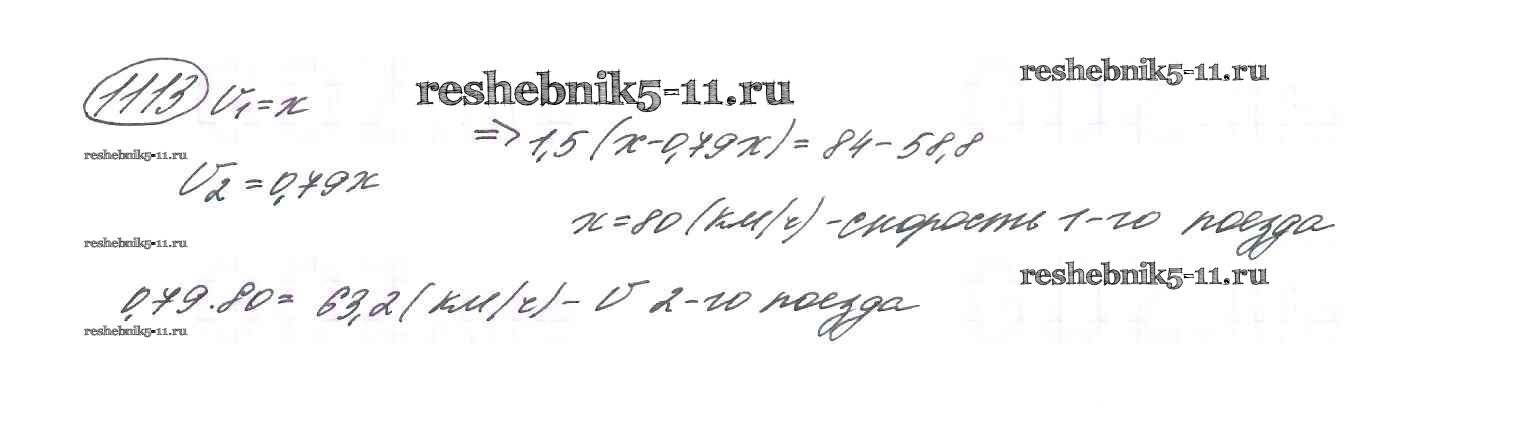 1113 V₁=x
reshebnik5-11.ru
reshebnik5-11.ru
=> 1,5(x-0,79x)=84-58,8
reshebnik5-11.ru
V₂=0,79x
x=80(км/ч)-скорость 1-го поезда
reshebnik5-11.ru
reshebnik5-11.ru
0,79·80=63,2(км/ч)-V 2-го поезда
reshebnik5-11.ru